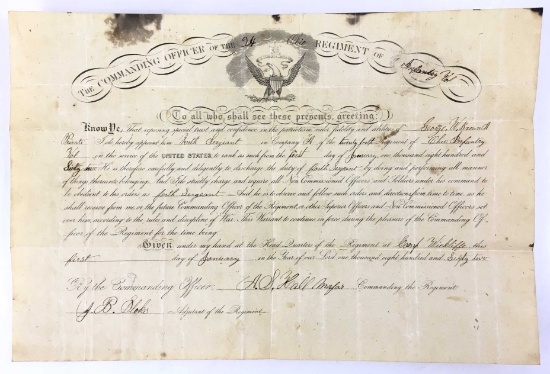 THE COMMANDING OFFICER OF THE 24 Ohio REGIMENT OF Infantry Vol
To all who shall see these presents, greeting:
Know Ye, that reposing special trust and confidence in the patriotism, valor, fidelity and abilities of George W.
Private I do hereby appoint him Sergeant in Company H of the Twenty fourth Regiment of Ohio Infantry
Vol in the service of the UNITED STATES to rank as such from the first day of January one thousand eight hundred and
Sixty He is therefore carefully and diligently to discharge the duty of Sergeant by doing and performing all manner
of things thereunto belonging. And I do strictly charge and require all Non Commissioned Officers and Soldiers under his command to
be obedient to his orders as Sergeant And he is to observe and follow such orders and directions from time to time, as he
shall receive from me or the future Commanding Officer of the Regiment, or other Superior Officers and Non Commissioned Officers set
over him, according to the rules and discipline of War. This Warrant to continue in force during the pleasure of the Commanding Of-
ficer of the Regiment for the time being.
Given under my hand at the Head Quarters of the Regiment at Camp Wickliffe this
first day of January in the Year of our Lord one thousand eight hundred and Sixty
By the Commanding Officer A. S. Hall Major Commanding the Regiment
J. B. Adjutant of the Regiment